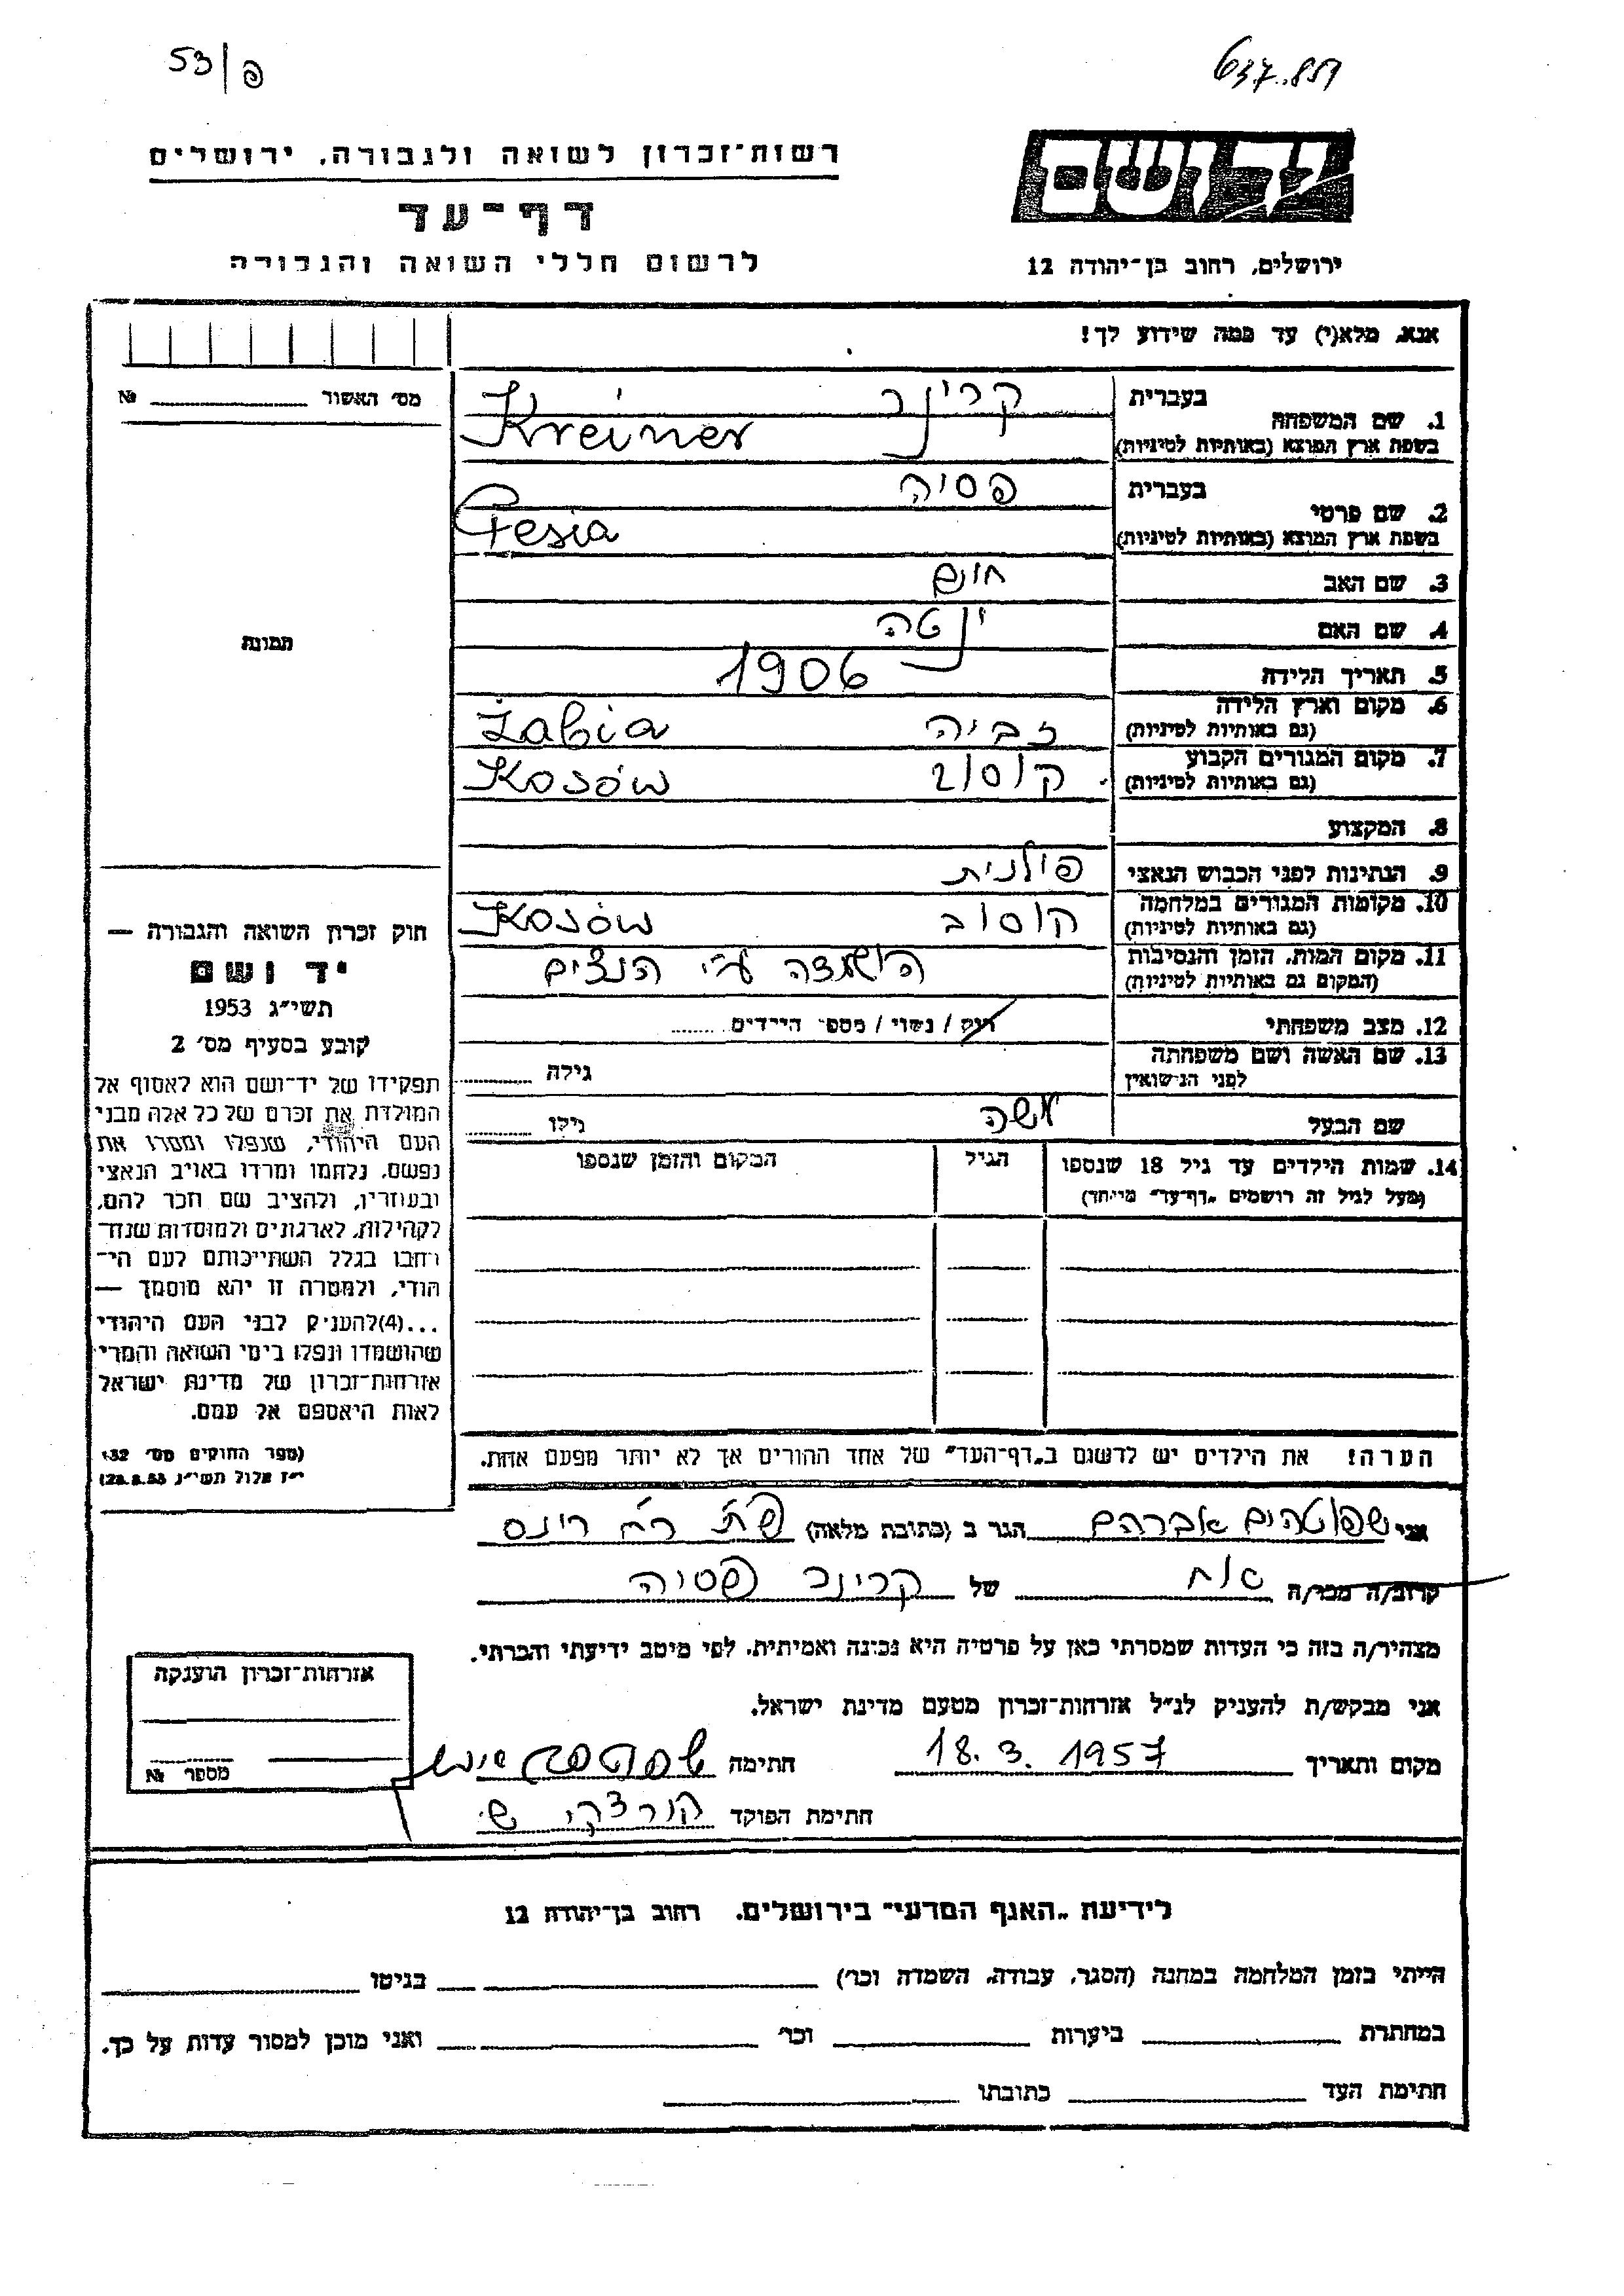 53/פ
637.851
יד ושם
רשות־זכרון לשואה ולגבורה, ירושלים
דף־עד
לרשום חללי השואה והגבורה
ירושלים, רחוב בן־יהודה 12
אנא, מלא(י) עד כמה שידוע לך!
מס׳ האשור № 
1. שם המשפחה
בעברית קרינר
בשפת ארץ המוצא (באותיות לטיניות) Kreiner
2. שם פרטי
בעברית פסיה
בשפת ארץ המוצא (באותיות לטיניות) Pesia
3. שם האב חיים
4. שם האם ינטה
תמונה
5. תאריך הלידה 1906
6. מקום וארץ הלידה זביה Żabia
(גם באותיות לטיניות)
7. מקום המגורים הקבוע קוסוב Kosów
(גם באותיות לטיניות)
8. המקצוע
9. הנתינות לפני הכבוש הנאצי פולנית
10. מקומות המגורים במלחמה קוסוב Kosów
(גם באותיות לטיניות)
11. מקום המות, הזמן והנסיבות הושמדה ע״י הנצים
(המקום גם באותיות לטיניות)
12. מצב משפחתי רוק / נשוי / מספר הילדים
13. שם האשה ושם משפחתה גילה
לפני הנישואין
שם הבעל משה גילו
14. שמות הילדים עד גיל 18 שנספו הגיל המקום והזמן שנספו
(מעל לגיל זה רושמים „דף־עד״ מייחד)
חוק זכרון השואה והגבורה —
יד ושם
תשי״ג 1953
קובע בסעיף מס׳ 2
תפקידו של יד־ושם הוא לאסוף אל
המולדת את זכרם של כל אלה מבני
העם היהודי, שנפלו ומסרו את
נפשם, נלחמו ומרדו באויב הנאצי
ובעוזריו, ולהציב שם וזכר להם,
לקהילות, לארגונים ולמוסדות שנח־
רבו בגלל השתייכותם לעם הי־
הודי, ולמטרה זו יהא מוסמך —
...(4) להעניק לבני העם היהודי
שהושמדו ונפלו בימי השואה והמרי
אזרחות־זכרון של מדינת ישראל
לאות היאספם אל עמם.
(ספר החוקים מס׳ 132
י״ז אלול תשי״ג 28.8.53)
הערה! את הילדים יש לרשום ב„דף־העד״ של אחד ההורים אך לא יותר מפעם אחת.
אני אברהם הגר ב (כתובת מלאה)
קרוב/ה מכר/ה אח של קרינר פסיה
מצהיר/ה בזה כי העדות שמסרתי כאן על פרטיה היא נכונה ואמיתית, לפי מיטב ידיעתי והכרתי.
אני מבקש/ת להעניק לנ״ל אזרחות־זכרון מטעם מדינת ישראל.
מקום ותאריך 18.3.1957 חתימה
חתימת הפוקד
אזרחות־זכרון הוענקה
מספר №
לידיעת „האגף המדעי״ בירושלים, רחוב בן־יהודה 12
הייתי בזמן המלחמה במחנה (הסגר, עבודה, השמדה וכו׳) בגיטו
במחתרת ביערות וכו׳ ואני מוכן למסור עדות על כך.
חתימת העד כתובתו